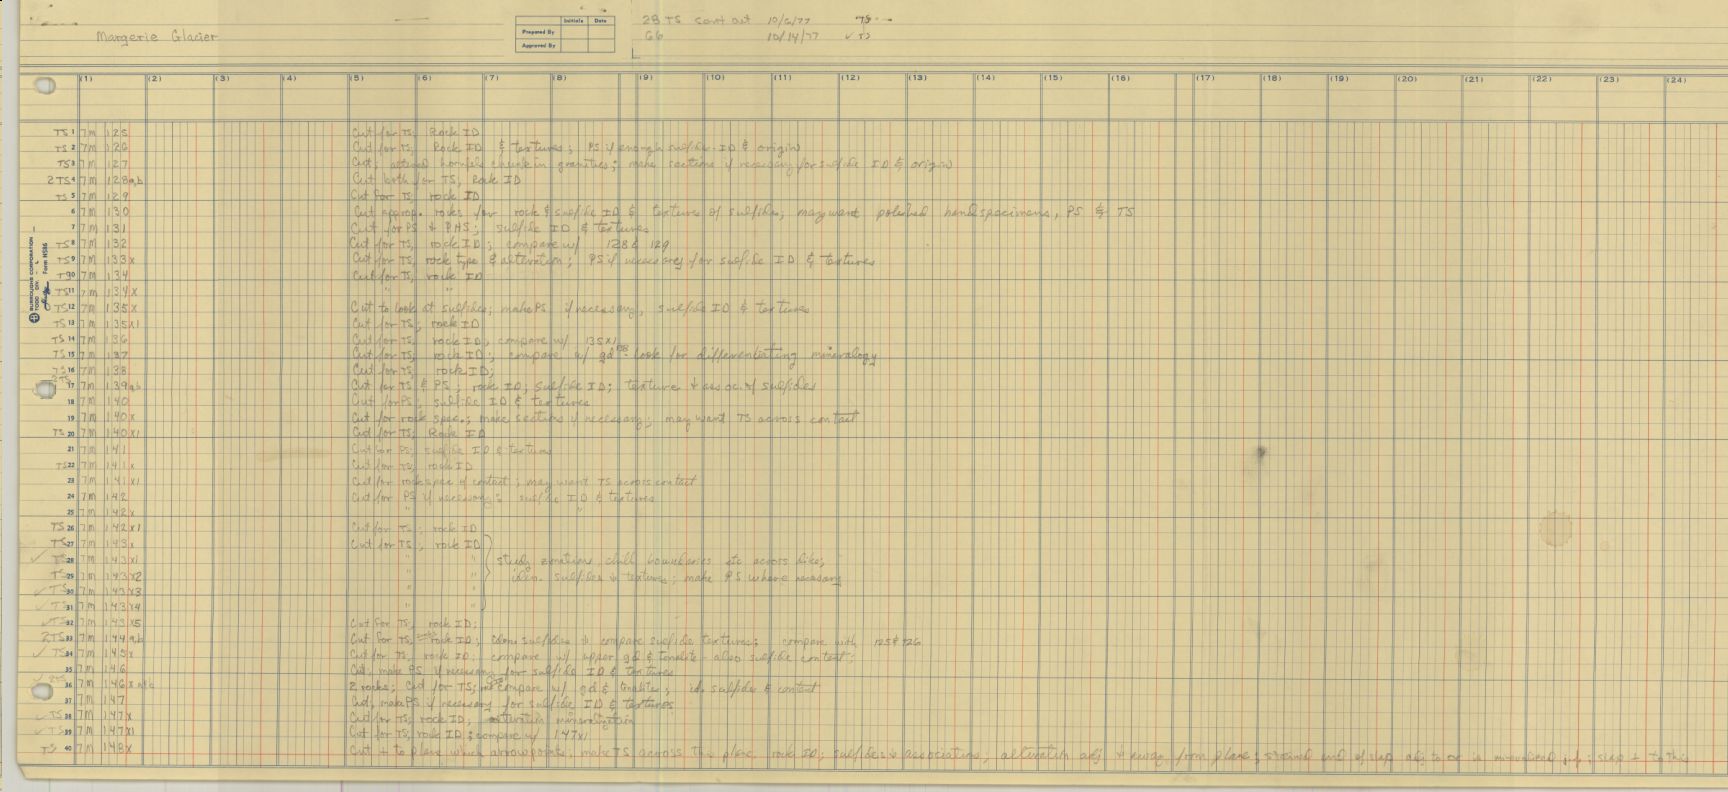 28 TS sent out 10/6/77 TS
Margerie Glacier
66 10/14/77 ✓ TS
Initials Date
Prepared By
Approved By
(1) (2) (3) (4) (5) (6) (7) (8) (9) (10) (11) (12) (13) (14) (15) (16) (17) (18) (19) (20) (21) (22) (23) (24)
BURROUGHS CORPORATION
TODD DIV.
Form H516
TS 1 7m 125 Cut for TS; Rock ID
TS 2 7m 126 Cut for TS; Rock ID & textures; PS if enough sulfide - ID & origin
TS 3 7m 127 Cut; altered hornfels chunk in granitics; make sections if necessary for sulfide ID & origin
2TS 4 7m 128a,b Cut both for TS, Rock ID
TS 5 7m 129 Cut for TS; rock ID
6 7m 130 Cut approp. rocks for rock & sulfide ID & textures of sulfides; may want polished hand specimens, PS & TS
7 7m 131 Cut for PS & PHS; sulfide ID & textures
TS 8 7m 132 Cut for TS, rock ID; compare w/ 128 & 129
TS 9 7m 133x Cut for TS; rock type & alteration; PS if necessary for sulfide ID & textures
TS 10 7m 134 Cut for TS, rock ID
TS 11 7m 134x " "
TS 12 7m 135x Cut to look at sulfides; make PS if necessary; sulfide ID & textures
TS 13 7m 135x1 Cut for TS; rock ID
TS 14 7m 136 Cut for TS, rock ID; compare w/ 135x1
TS 15 7m 137 Cut for TS; rock ID; compare w/ gd - look for differentiating mineralogy
TS 16 7m 138 Cut for TS, rock ID;
2TS 17 7m 139a,b Cut for TS & PS; rock ID; sulfide ID; texture & assoc. of sulfides
18 7m 140 Cut for PS; sulfide ID & textures
19 7m 140x Cut for rock spec.; make section if necessary; may want TS across contact
TS 20 7m 140x1 Cut for TS; Rock ID
21 7m 141 Cut for PS; sulfide ID & textures
TS 22 7m 141x Cut for TS, rock ID
23 7m 141x1 Cut for rock spec of contact; may want TS across contact
24 7m 142 Cut for PS if necessary; sulfide ID & textures
25 7m 142x " "
TS 26 7m 142x1 Cut for TS; rock ID
TS 27 7m 143x Cut for TS; rock ID
✓ TS 28 7m 143x1 " " study zonations, chill boundaries etc across dike;
TS 29 7m 143x2 " " iden. sulfides & textures; make PS where necessary
✓ TS 30 7m 143x3 " "
✓ TS 31 7m 143x4 " "
32 7m 143x5 Cut for TS, rock ID;
2TS 33 7m 144a,b Cut for TS, rock ID; sulfides & compare sulfide textures; compare with 125 & 126
✓ TS 34 7m 145x Cut for TS, rock ID; compare w/ upper gd & tonalite - also sulfide content;
35 7m 146 Cut, make PS if necessary for sulfide ID & textures
36 7m 146x 2 rocks; Cut for TS; compare w/ gd & tonalite; id. sulfides & contact
37 7m 147 Cut, make PS if necessary for sulfide ID & textures
✓ TS 38 7m 147x Cut for TS, rock ID; alteration mineralization
✓ TS 39 7m 147x1 Cut for TS, rock ID; compare w/ 147x
TS 40 7m 148x Cut ⊥ to plane which arrow points; make TS across this plane, rock ID; sulfides & associations, alteration adj & away from plane; end of slab adj to or in mineralized; slab ⊥ to this